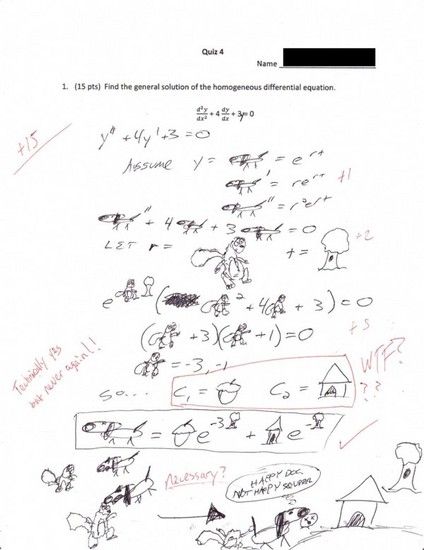 Quiz 4
Name
1. (15 pts) Find the general solution of the homogeneous differential equation.
d²y/dx² + 4 dy/dx + 3y = 0
+15
y'' + 4y' + 3 = 0
ASSUME y = = e^rt
' = re^rt +1
'' = r²e^rt
'' + 4 ' + 3 = 0
LET r = t = +2
e ( ² + 4 + 3) = 0
( + 3)( + 1) = 0
+5
= -3, -1
WTF?
??
Technically yes
but never again!!
SO... C₁ = C₂ =
= e^-3 + e^-
necessary?
HAPPY DOG
NOT HAPPY SQUIRREL